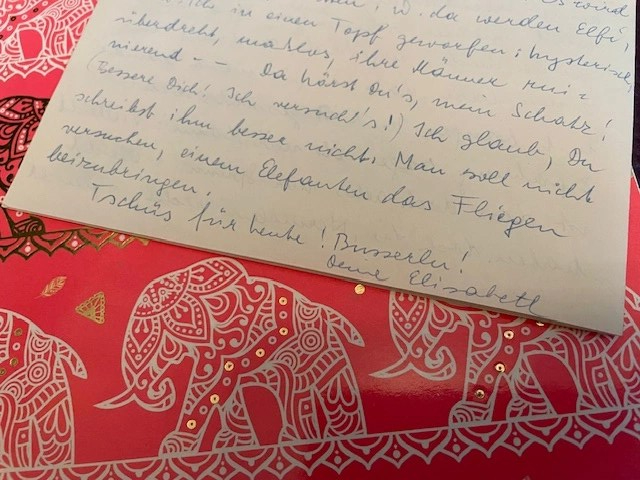 wird
, w. da werden Elfi,
Ich in einen Topf geworfen: hysterisch,
überdreht, maßlos, ihre Männer rui=
nierend - - Da hörst Du's, mein Schatz!
(Bessere Dich! Ich versuch's!) Ich glaub, Du
schreibst ihm besser nicht. Man soll nicht
versuchen, einem Elefanten das Fliegen
beizubringen.
Tschüs für heute! Busserln!
Deine Elisabeth